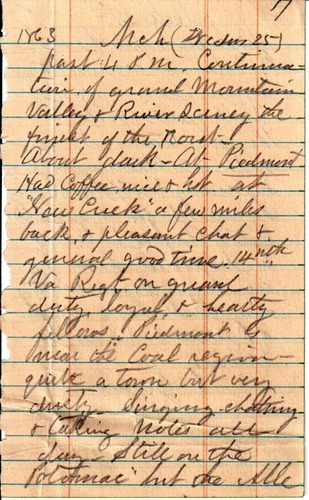 17
1863 Mch (Wednes 25)
past 4 P.M. Continua-
tion of grand Mountain
Valley & River Scenery the
finest of the
About dark - At Piedmont
Had Coffee, nice & hot at
"New Creek" a few miles
back, & pleasant chat &
general good time. 14
Va Regt on guard
duty loyal, & hearty
fellows. Piedmont is
near the Coal region -
quite a town but very
dirty - Singing chatting
& taking Notes all
day - Still on the
"Potomac" but the Alle